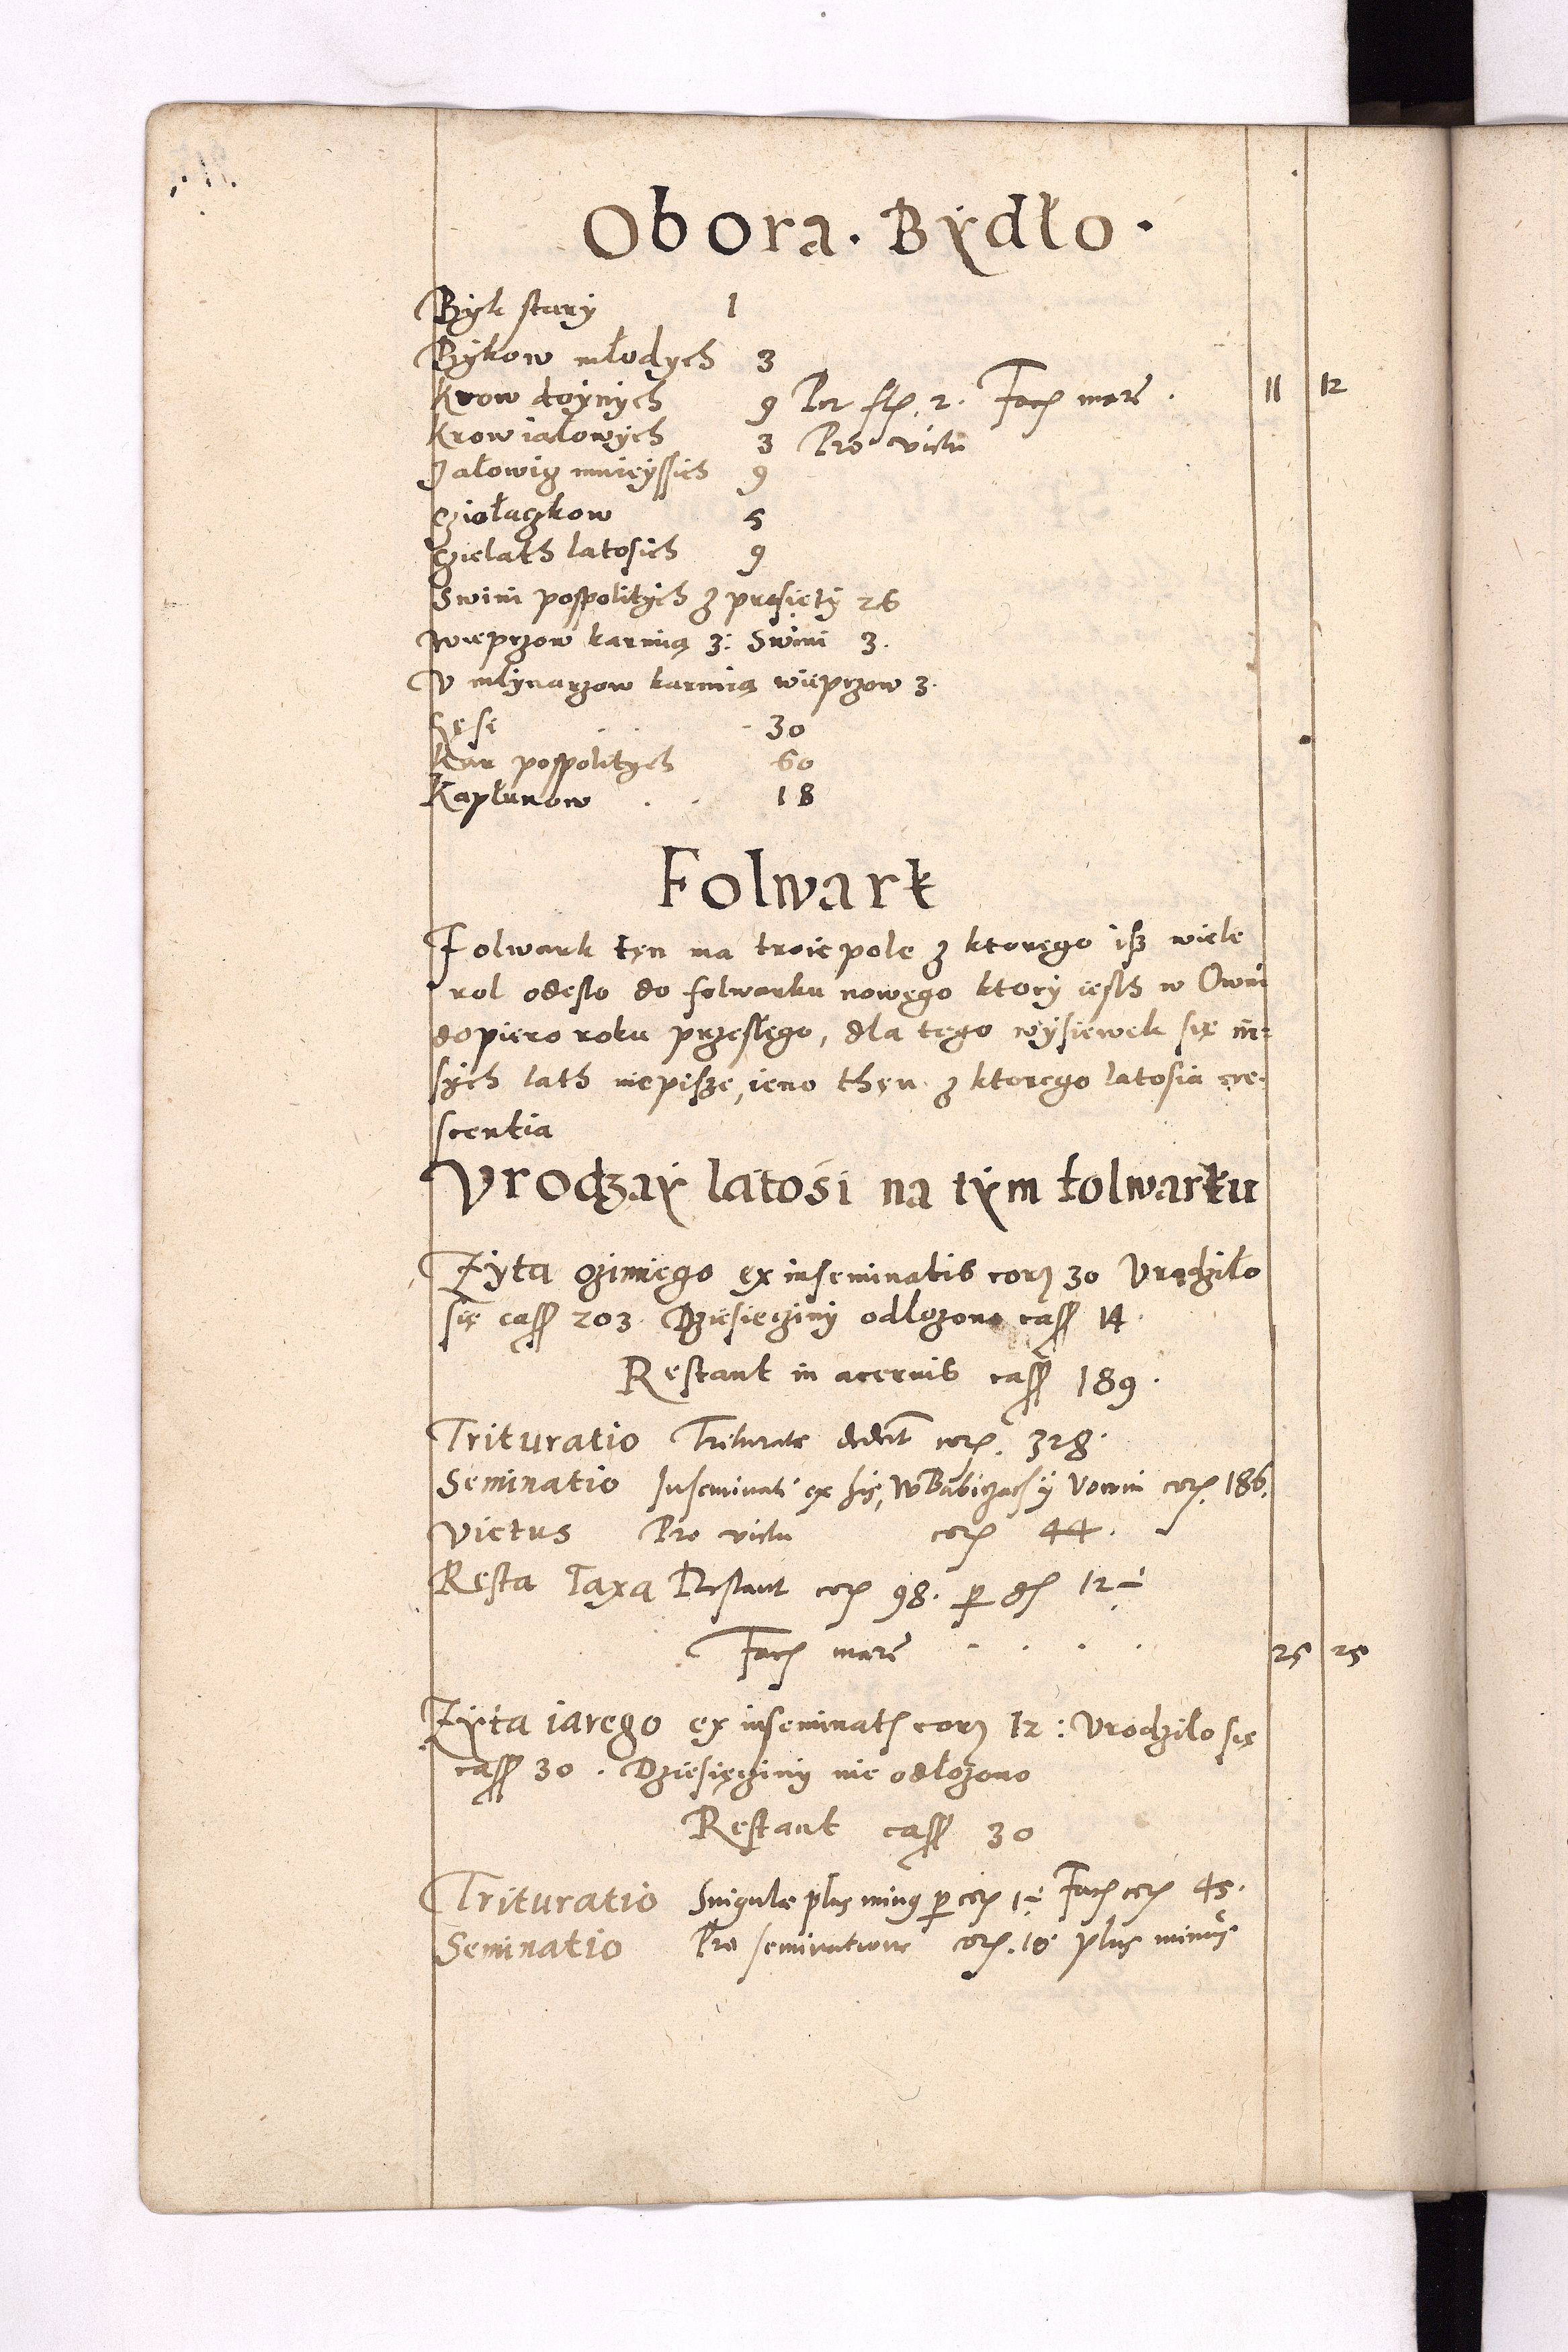 Obora. Bydło.
Byk stary 1
Bykow młodych 3
Krow doynych 9 Per fl. 2. Fac marc. 11 12
Krow iałowych 3 Pro victu
Jałowig mnieyssich 9
Cziołaczkow 5
Czielath latosich 9
Swini pospolitych z prosięty 26
Wieprzow karmią 3: Swini 3.
V mlynarzow karmią wieprzow 3.
Gęsi 30
Kur pospolitych 60
Kapłunow 18
Folwark
Folwark ten ma troie pole z ktorego isz wiele
rol odeslo do folwarku nowego ktory iesth w Owin
dopiero roku przeslego, dla tego wysiewek się in:
sych lath niepisze, ieno then z ktorego latosia cre-
scentia
Vrodzay latosi na tym folwarku
Zyta ozimiego ex inseminatis cor 30 Vrodziło
się cass 203. Dziesieciny odlozono cass 14.
Restant in acervis cass 189.
Trituratio Triturate dedert cor. 328.
Seminatio Inseminati ex his, W Babiczach y Vowin cor. 186.
Victus Pro victu cor 44.
Resta Taxa Restant cor 98. p g 12 ÷
Fac marc 25 25
Zyta iarego ex inseminat cor 12: Vrodziło się
cass 30. Dziesięciny nie odłozono
Restant cass 30
Trituratio Singule plus minus p cor 1 ÷ Fac cor 45.
Seminatio Pro seminatione cor. 18 plus minus